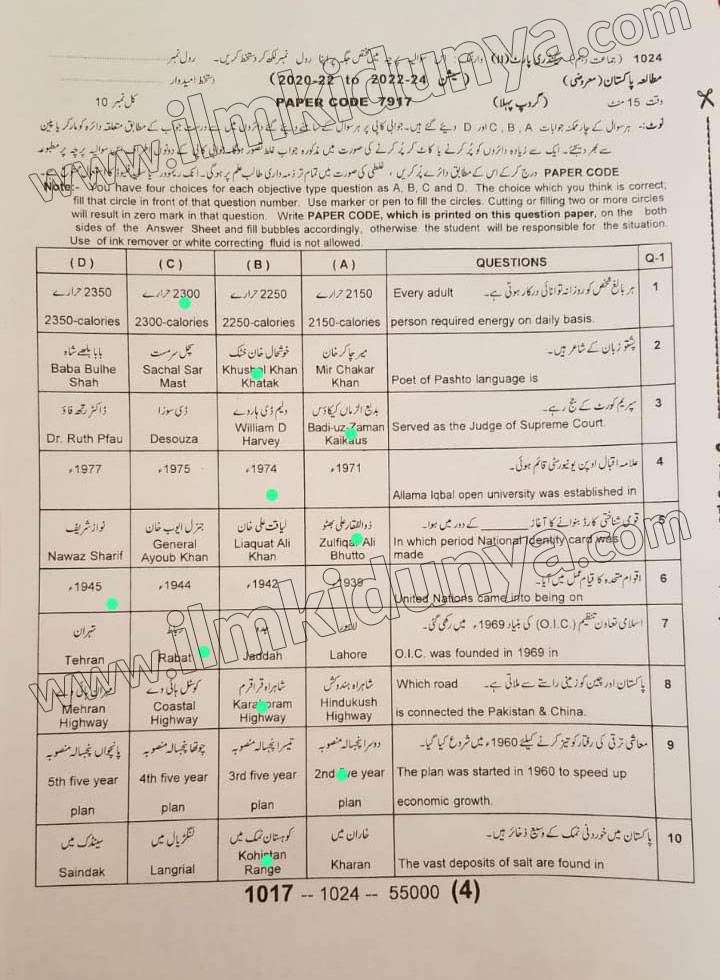 1024 (جماعت دہم) سیکنڈری پارٹ (II) وارننگ: اس سوالیہ پرچہ میں مختص جگہ پر اپنا رول نمبر لکھ کر دستخط کریں۔ رول نمبر
مطالعہ پاکستان (معروضی) (سیشن 2020-22 to 2022-24) دستخط امیدوار
وقت 15 منٹ (گروپ پہلا) PAPER CODE 7917 کل نمبر 10
نوٹ:- ہر سوال کے چار ممکنہ جوابات A, B, C اور D دیئے گئے ہیں۔ جوابی کاپی پر ہر سوال کے سامنے دیئے گئے دائروں میں سے درست جواب کے مطابق متعلقہ دائرہ کو مارکر یا پین
سے بھر دیجئے۔ ایک سے زیادہ دائروں کو پُر کرنے یا کاٹ کر پُر کرنے کی صورت میں مذکورہ جواب غلط تصور ہوگا۔ جوابی کاپی کے دونوں سوالیہ پرچہ پر مطبوعہ
PAPER CODE درج کر کے اس کے مطابق دائرے پُر کریں، غلطی کی صورت میں تمام تر ذمہ داری طالب علم پر ہوگی۔
Note:- You have four choices for each objective type question as A, B, C and D. The choice which you think is correct;
fill that circle in front of that question number. Use marker or pen to fill the circles. Cutting or filling two or more circles
will result in zero mark in that question. Write PAPER CODE, which is printed on this question paper, on the both
sides of the Answer Sheet and fill bubbles accordingly, otherwise the student will be responsible for the situation.
Use of ink remover or white correcting fluid is not allowed.
(D) (C) (B) (A) QUESTIONS Q-1
2350 حرارے 2300 حرارے 2250 حرارے 2150 حرارے Every adult ہر بالغ شخص کو روزانہ توانائی درکار ہوتی ہے۔ 1
2350-calories 2300-calories 2250-calories 2150-calories person required energy on daily basis.
بابا بلھے شاہ سچل سرمست خوشحال خان خٹک میر چاکر خان پشتو زبان کے شاعر ہیں۔ 2
Baba Bulhe Sachal Sar Khushal Khan Mir Chakar
Shah Mast Khatak Khan Poet of Pashto language is
ڈاکٹر رتھ فاؤ ڈی سوزا ولیم ڈی ہاروے بدیع الزماں کیکاؤس سپریم کورٹ کے جج رہے۔ 3
Dr. Ruth Pfau Desouza William D Badi-uz-Zaman Served as the Judge of Supreme Court.
Harvey Kaikaus
1977ء 1975ء 1974ء 1971ء علامہ اقبال اوپن یونیورسٹی قائم ہوئی۔ 4
Allama Iqbal open university was established in
نواز شریف جنرل ایوب خان لیاقت علی خان ذوالفقار علی بھٹو قومی شناختی کارڈ بنوانے کا آغاز ______ کے دور میں ہوا۔ 5
Nawaz Sharif General Liaquat Ali Zulfiqar Ali In which period National Identity card was
Ayoub Khan Khan Bhutto made
1945ء 1944ء 1942ء 1939ء اقوام متحدہ کا قیام عمل میں آیا۔ 6
United Nations came into being on
تہران رباط جدہ لاہور اسلامی تعاون تنظیم (O.I.C) کی بنیاد 1969ء میں رکھی گئی۔ 7
Tehran Rabat Jeddah Lahore O.I.C. was founded in 1969 in
مہران ہائی وے کوسٹل ہائی وے شاہراہ قراقرم شاہراہ ہندوکش Which road پاکستان اور چین کو زمینی راستے سے ملاتی ہے۔ 8
Mehran Coastal Karakoram Hindukush
Highway Highway Highway Highway is connected the Pakistan & China.
پانچواں پنجسالہ منصوبہ چوتھا پنجسالہ منصوبہ تیسرا پنجسالہ منصوبہ دوسرا پنجسالہ منصوبہ معاشی ترقی کی رفتار کو تیز کرنے کیلئے 1960ء میں شروع کیا گیا۔ 9
5th five year 4th five year 3rd five year 2nd five year The plan was started in 1960 to speed up
plan plan plan plan economic growth.
سینڈک میں لنگڑیال میں کوہستان نمک میں خاران میں پاکستان میں خوردنی نمک کے وسیع ذخائر ہیں۔ 10
Saindak Langrial Kohistan Range Kharan The vast deposits of salt are found in
1017 -- 1024 -- 55000 (4)
www.ilmkidunya.com
www.ilmkidunya.com
www.ilmkidunya.com